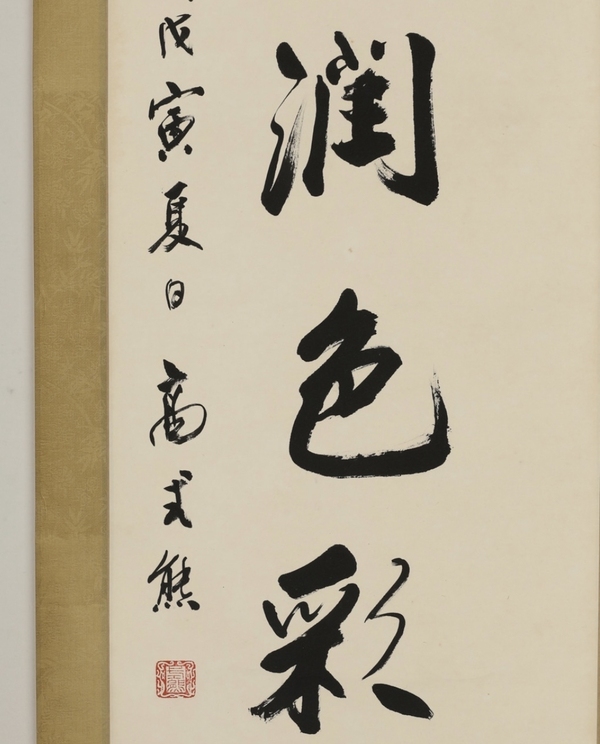 润色彩
戊寅夏日高式熊